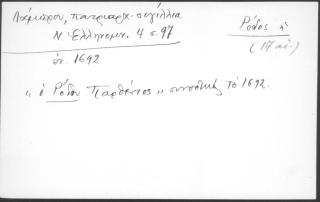 Λάμπρου, πατριαρχ. σιγίλλια
Ν. Ἑλληνομν. 4 σ. 97
ἔτ. 1692
Ρόδος ἡ
(17 αἰ.)
"ὁ Ρόδου Παρθένιος" τὸ 1692.